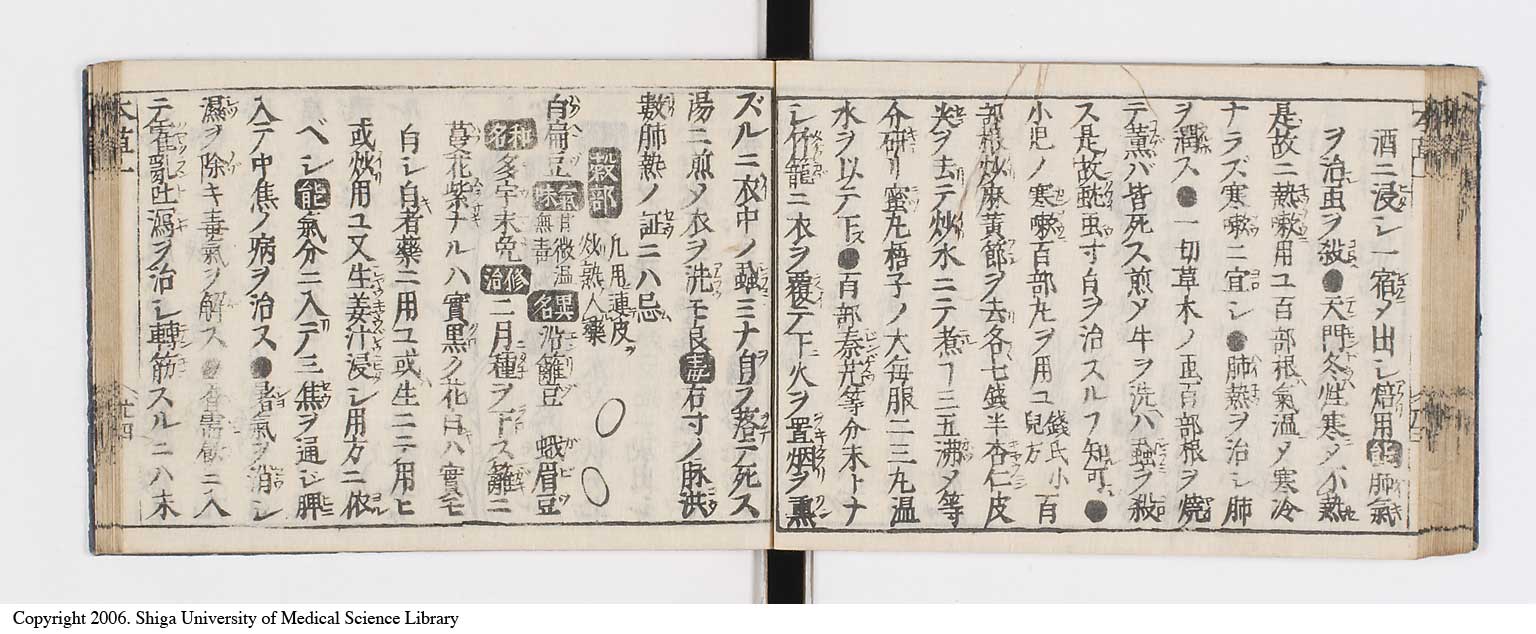 酒ニ浸シ一宿乄出シ焙用能肺氣
ヲ治虫ヲ殺●天門冬性寒乄小熱
是故ニ熱嗽用ユ百部根氣温乄寒冷
ナラズ寒嗽ニ宜シ●肺熱ヲ治シ肺
ヲ潤ス●一切草木ノ虫百部根ヲ燒
テ薫バ皆死ス煎〆牛ヲ洗ハ蝨ヲ殺
ス是故蚘虫寸白ヲ治スルフ知可●
小児ノ寒嗽百部丸ヲ用ユ錢氏小兒方百
部根炒麻黄節ヲ去各七錢半杏仁皮
尖ヲ去テ炒水ニテ煮ヿ三五沸乄等
分研リ蜜丸梧子ノ大毎服二三丸温
水ヲ以テ下ス●百部秦艽等分末トナ
シ竹籠ニ衣ヲ覆テ下火ヲ置烟ヲ熏
ズルニ衣中ノ蝨ミナ自ラ落テ死ス
湯ニ煎〆衣ヲ洗モ良毒右寸ノ脉洪
數肺熱ノ証ニハ忌
穀部 凢甩連皮ヲ炒熟入藥
白扁豆氣味甘微温無毒異名沿籬豆 蛾眉豆
種名多宇末免修治二月種ヲ下ス籬ニ
蔓花紫ナルハ實黒ク花白ハ實モ
白シ白者藥ニ用ユ或生ニ用ヒ
或炒用ユ又生姜汁浸シ用方ニ依
ベシ能氣分ニ入テ三焦ヲ通シ脾
入テ中焦ノ病ヲ治ス●暑氣ヲ消シ
濕ヲ除キ毒氣ヲ解ス●香需飲ニ入
テ霍乱吐瀉ヲ治シ轉筋スルニハ末
本草一
廿四
Copyright 2006. Shiga University of Medical Science Library